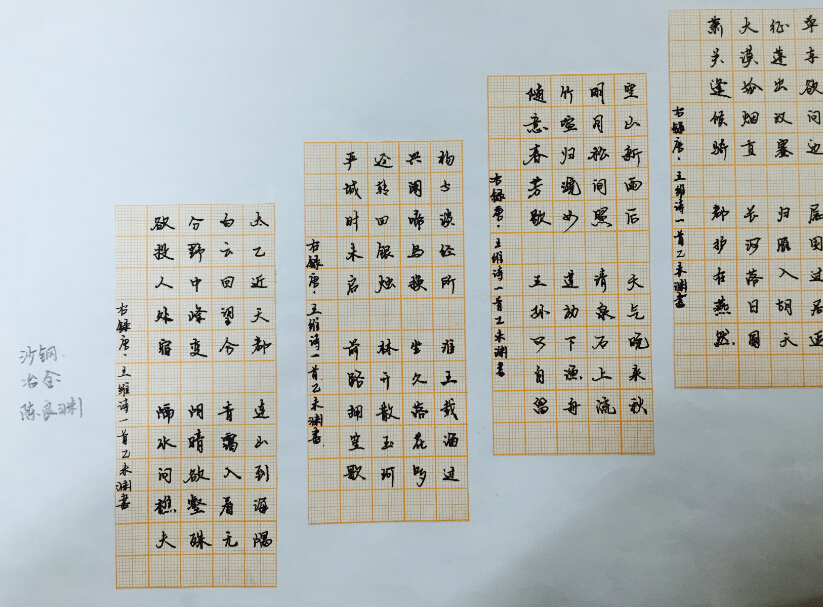 单车欲问边 属国过居延
征蓬出汉塞 归雁入胡天
大漠孤烟直 长河落日圆
萧关逢候骑 都护在燕然
右録唐·王维诗一首乙未渊书
空山新雨后 天气晚来秋
明月松间照 清泉石上流
竹喧归浣女 莲动下渔舟
随意春芳歇 王孙可自留
右録唐·王维诗一首乙未渊书
杨子谈经所 淮王载酒过
兴阑啼鸟换 坐久落花多
迳转回银烛 林开散玉珂
严城时未启 前路拥笙歌
右録唐·王维诗一首乙未渊书
太乙近天都 连山到海隅
白云回望合 青霭入看无
分野中峰变 阴晴欲壑殊
欲投人处宿 隔水问樵夫
右録唐·王维诗一首乙未渊书
沙钢
冶金
陈良渊